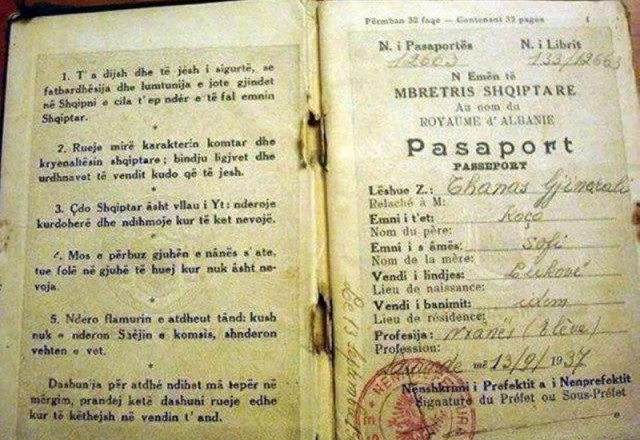 1. T'a dijsh dhe të jesh i sigurtë, se
fatbardhësija dhe lumtunija e jote gjindet
në Shqipni e cila t'ep ndër e të fal emnin
Shqiptar.
2. Rueje mirë karakterin komtar dhe
kryenaltësin shqiptare; bindju ligjvet dhe
urdhnavet të vendit kudo që të jesh.
3. Çdo Shqiptar âsht vllau i Yt: nderoje
kurdoherë dhe ndihmoje kur të ket nevojë.
4. Mos e përbuz gjuhën e nânës s'ate,
tue folë në gjuhë të huej kur nuk âsht ne-
voja.
5. Ndero flamurin e atdheut tând; kush
nuk e nderon Shêjin e komsis, shnderon
vehten e vet.
Dashunija për atdhé ndihet mâ tepër në
mërgim, prandej ketë dashuni rueje edhe
kur të këthejsh në vendin t'and.
Përmban 32 faqe — Contenant 32 pages 1
N. i Pasaportës N. i Librit
12663 133/12663
N Emën të
MBRETRIS SHQIPTARE
Au nom du
ROYAUME d'ALBANIE
Pasaport
PASSEPORT
Lëshue Z.: Thanas Gjinarali
Relaché à M:
Emni i t'et: Koço
Nom du père:
Emni i s âmës: Sofi
Nom de la mère:
Vendi i lindjes: Lukovë
Lieu de naissance:
Vendi i banimit: Idem
Lieu de résidence:
Profesija: Nxanës (Elève)
Profession:
Sarandë më 13/9/1937
Nënshkrimi i Prefektit a i Nenprefektit
Signature du Préfet ou Sous-Préfet
Le 13